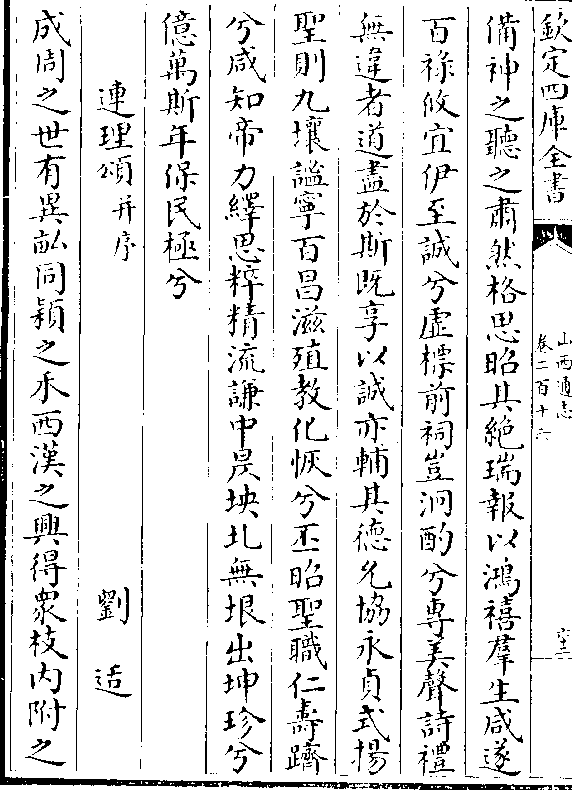 欽定四庫全書
山西通志
卷二百十六
備神之聽之肅然格思昭其絶瑞報以鴻禧羣生咸遂
百祿攸宜伊至誠兮虛標前祠豈泂酌兮專美聲詩禮
無違者道盡於斯既享以誠亦輔其德允協永貞式揚
聖則九壤謐寧百昌滋殖教化恢兮丕昭聖職仁夀躋
兮咸知帝力繹思粹精流謙中昃坱圠無垠出坤珍兮
億萬斯年保民極兮
連理頌并序
劉适
成周之世有異畝同穎之禾西漢之興得衆枝内附之